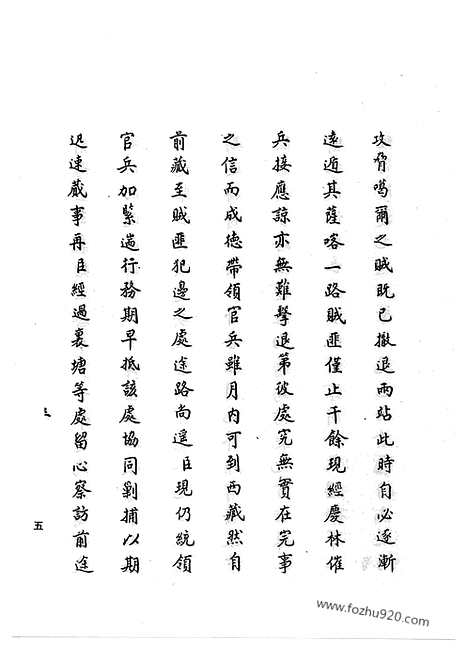 攻脅噶爾之賊既已撤退兩站此時自必逐漸
遠遁其薩喀一路賊匪僅止千餘現經慶林催
兵接應諒亦無難擊退第彼處究無實在完事
之信而成德帶領官兵雖月內可到西藏然自
前藏至賊匪犯邊之處途路尚遥臣現仍統領
官兵加緊遄行務期早抵該處協同剿捕以期
迅速蕆事再臣經過裏塘等處留心察訪前途
五
www.fozhu920.com